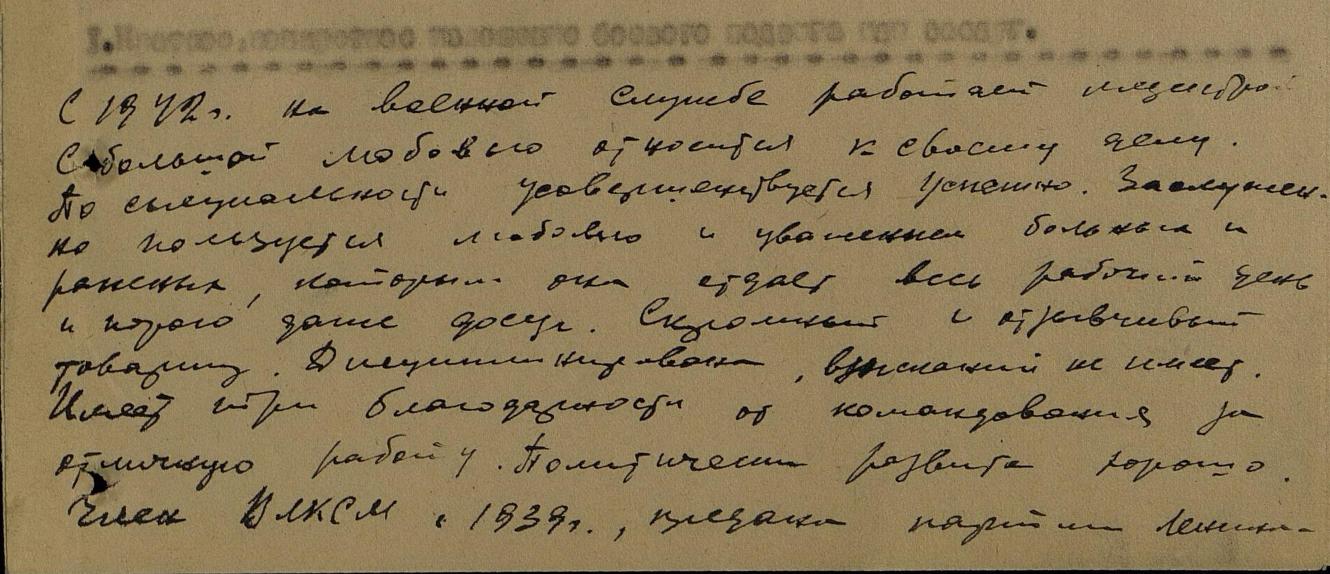 I. Краткое, конкретное изложение боевого подвига или заслуг.
С 1942г. на военной службе работает медсестрой
С большой любовью относится к своему делу.
По специальности усовершенствуется успешно. Заслужен-
но пользуется любовью и уважением больных и
раненых, которым она отдает весь рабочий день
и порою даже досуг. Скромный и отзывчивый
товарищ. Дисциплинирована, взысканий не имеет.
Имеет три благодарности от командования за
отличную работу. Политически развита хорошо.
Член ВЛКСМ с 1939г., предана партии Ленина-